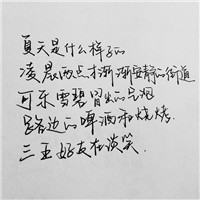 夏天是什么样子的
凌晨两点才渐渐安静的街道
可乐雪碧冒出的气泡
路边的啤酒和烧烤
三五好友在谈笑.